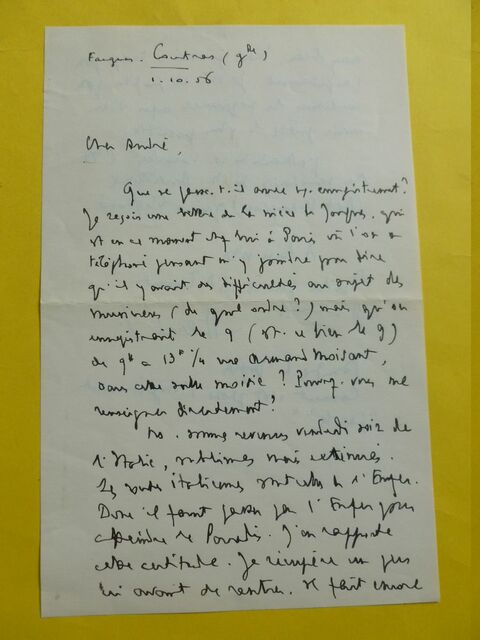 Fargues. Coutras (gde)
1.10.56
Cher André,
Que se passe-t-il avec enregistrement?
Je reçois une lettre de la mère de Jacques. qui
est en ce moment chez moi à Paris où l'on a
téléphoné pensant m'y joindre pour dire
qu'il y avait des difficultés au sujet des
musiciens (de quel ordre?) mais qu'on
enregistrait le 9 (est-ce bien le 9)
de 9h à 13h 1/4 rue Armand Moisant,
dans cette salle moisie? Pouvez-vous me
renseigner directement?
ns. sommes revenus vendredi soir de
l'Italie, sublimes mais exténués.
Les routes italiennes sont celles de l'Enfer.
Donc il faut passer par l'Enfer pour
atteindre le Paradis. J'en rapporte
cette certitude. Je récupère un peu
ici avant de rentrer. Il fait encore